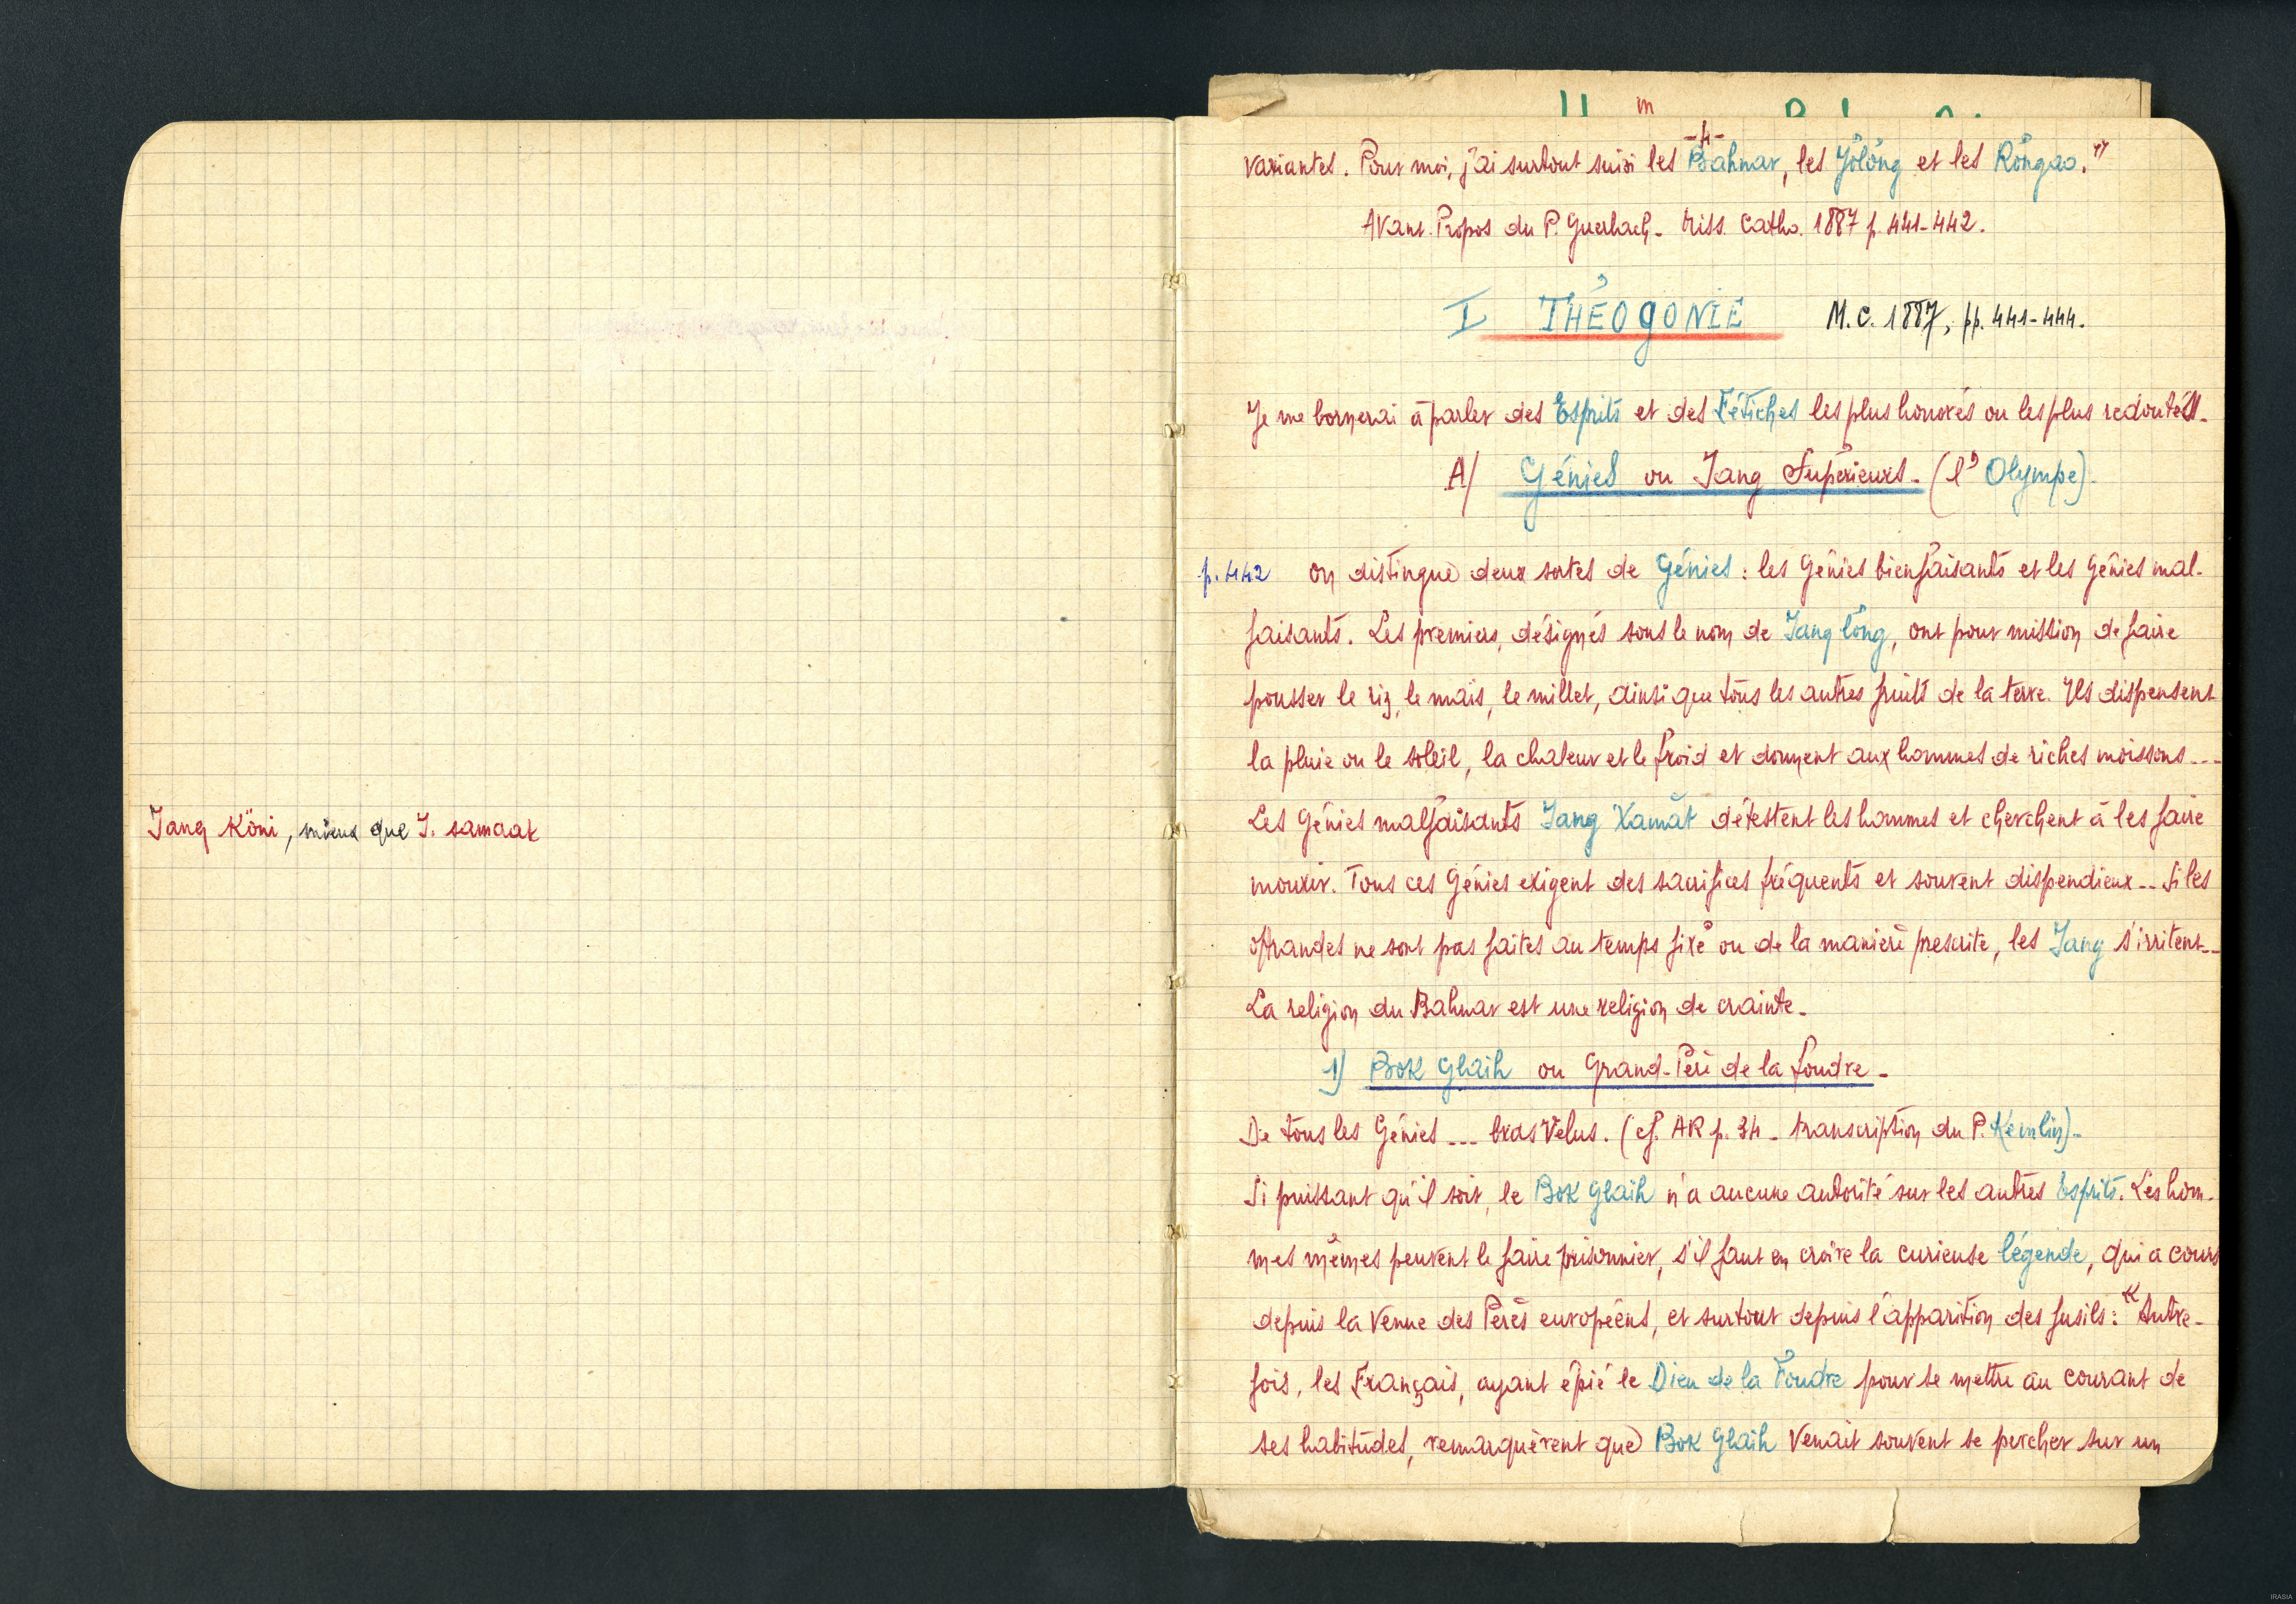 Jang Köni, mieux que J. samaat
-4-
variantes. Pour moi, j'ai surtout suivi les Bahnar, les Jölöng et les Röngao."
Avant-Propos du P. Guerlach - Miss. Catho. 1887 p. 441-442.
I THÉOGONIE M.C. 1887, pp. 441-444.
Je me bornerai à parler des Esprits et des Fétiches les plus honorés ou les plus redoutés.
A/ Génies ou Jang Supérieurs - (l'Olympe).
p. 442 On distingue deux sortes de Génies : les Génies bienfaisants et les Génies mal-
faisants. Les premiers, désignés sous le nom de Jang löng, ont pour mission de faire
pousser le riz, le maïs, le millet, ainsi que tous les autres fruits de la terre. Ils dispensent
la pluie ou le soleil, la chaleur et le froid et donnent aux hommes de riches moissons ...
Les Génies malfaisants Jang Xamăt détestent les hommes et cherchent à les faire
mourir. Tous ces Génies exigent des sacrifices fréquents et souvent dispendieux ... Si les
offrandes ne sont pas faites au temps fixé ou de la manière prescrite, les Jang s'irritent ...
La religion du Bahnar est une religion de crainte.
1) Bok Glaih ou Grand-Père de la foudre -
De tous les Génies ... bras velus. (cf. AR p. 34 - transcription du P. Kemlin) -
Si puissant qu'il soit, le Bok Glaih n'a aucune autorité sur les autres Esprits. Les hom-
mes mêmes peuvent le faire prisonnier, s'il faut en croire la curieuse légende, qui a cours
depuis la venue des Pères européens, et surtout depuis l'apparition des fusils : "Autre-
fois, les Français, ayant épié le Dieu de la Foudre pour se mettre au courant de
ses habitudes, remarquèrent que Bok Glaih venait souvent se percher sur un
IRASIA